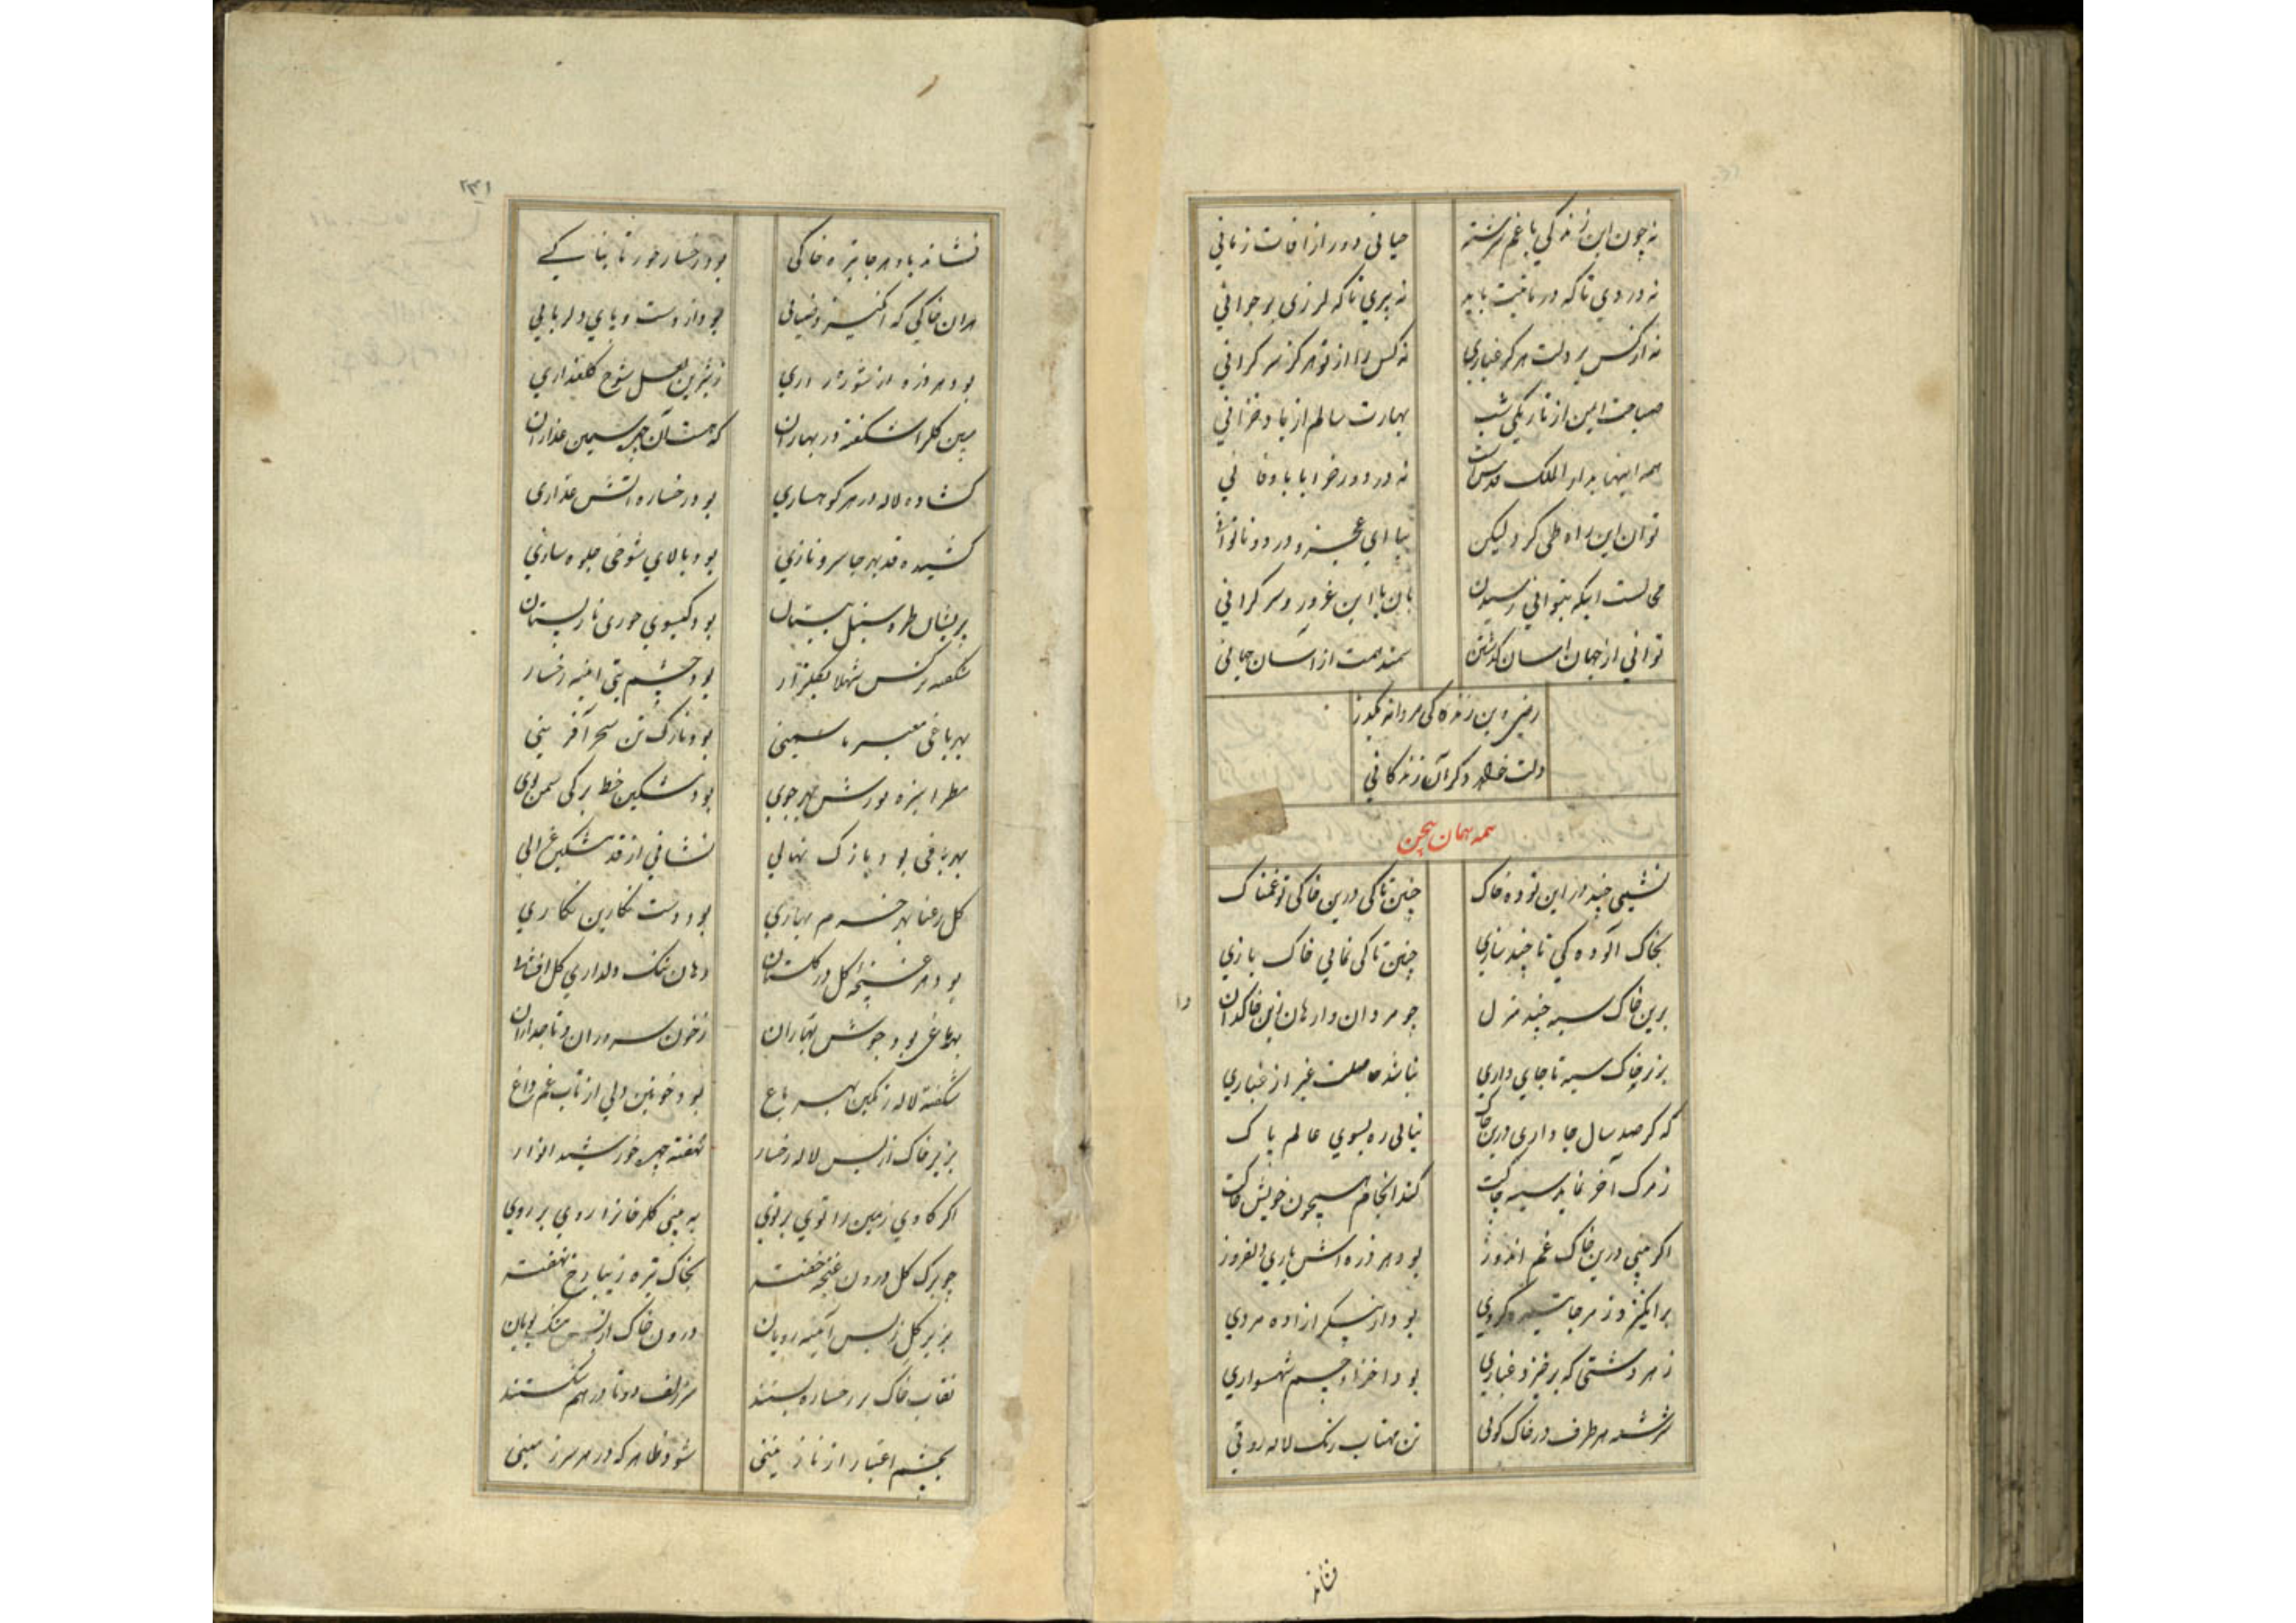 نه چون این زندگی با غم سرشته حیاتی دور از آفات زمانی
نه دردی تا که درمانیت باید نه پیری تا که لرزی بر جوانی
نه از کس بر دلت هرگز غباری نه کس را از تو هرگز سرگرانی
صباحت ایمن از تاریکی شب بهارت سالم از باد خزانی
همه اینها بدار الملک قدس است نه در دور خرابا باد فانی
توان این راه طی کرد لیکن بپای عجز و درد و ناتوانی
محالست اینکه بتوانی رسیدن بآن با این غرور و سرگرانی
توانی از جهان آسان گذشتن سمند همت از آسان جهانی
رضی وین زندگانی مردانه بگذر
دلت خواهد دگر آن زندگانی
سمه بهمان بحن
نشینی چند در این توده خاک چنین تا کی درین خاکی تو غمناک
بخاک آلوده کی تا چند سازی چنین تا کی نمایی خاک بازی
برین خاک سیه چند منزل چو مردان وارهان زین خاکدان
دل
بزیر خاک سیه تا جای داری نباشد حاصلت غیر از غباری
که گر صد سال جا داری درین خاک نیابی ره بسوی عالم پاک
ز مرگ آخر نماید سینه چاکت کند انجام همچون خویش خاکت
اگر بینی درین خاک غم اندوز بود هر ذره اش یاری دلفروز
برانگیزد ز هر جا تیره گردی بود از پیکر آزاده مردی
ز هر دشتی که برخیزد غباری بود اجزاء جسم شهسواری
سرشته هر طرف در خاک کوئی تن مهتاب رنگ لاله روئی
نشاند
۲۳۱
نشاند باد هر جا تیره خاکی بود رخسار حور تابناکی
هران خاکی که انگیزد ضیائی بود از دست و پای دلربائی
بود هر ذره از شوره زاری ز شیرین لعل شوخ گلعذاری
مبین گلرا شکفته در بهاران که هست آن چهر سیمین عذاران
گشاده لاله در هر کوهساری بود رخساره آتش عذاری
کشیده قد بهر جا سرو نازی بود بالای شوخی جلوه سازی
پریشان طره سنبل به بستان بود گیسوی حوری نارپستان
شکفته نرگس شهلا بگلزار بود چشم بتی آئینه رخسار
بهر باغی معیر یاسمینی بود نازک تن سحر آفرینی
مطرا سبزه نورش بهر جوی بود مشکین خط ترکی سمن بوی
بهر باغی بود نازک نهالی نشانی از قد مشکین غزالی
گل رعنا بهر خرم بهاری بود دست نگارین نگاری
بود هر غنچه گل در گلستان دهان تنگ دلداری گل افشان
بهر باغی بود جوش بهاران ز خون سروران و تاجداران
شکفته لاله رنگین بهر باغ بود خونین دلی از تاب غم داغ
بزیر خاک از بس لاله رخسار نهفته چهر خورشید انوار
اگر کاوی زمین را توی بر توی به بینی گلرخانرا روی بر روی
چو برگ گل درون غنچه خفته بخاک تیره زیبا رخ نهفته
بزیر گل ز بس آئینه رویان درون خاک از بس مشک بویان
نقاب خاک بر رخساره بستند سر زلف دوتا در هم شکستند
بچشم اعتبار از ناز بینی شود ظاهر که در هر سرزمینی